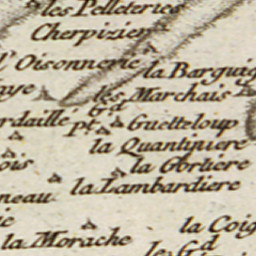 les Pelleteries
Cherpizier
l'Oisonnerie
la Barquig
aye
les Marchais
gd
rdaille
pt
Guetteloup
la Quantiniere
la Gortiere
ois
la Lambardiere
neau
ie
la Coig
la Morache
le gd